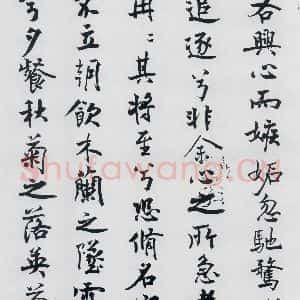 各興心而嫉妬忽馳騖
追逐兮非余心之所急
冉〻其將至兮恐脩名
不立朝飲木蘭之墜露
兮夕餐秋菊之落英
Shufawang.CN